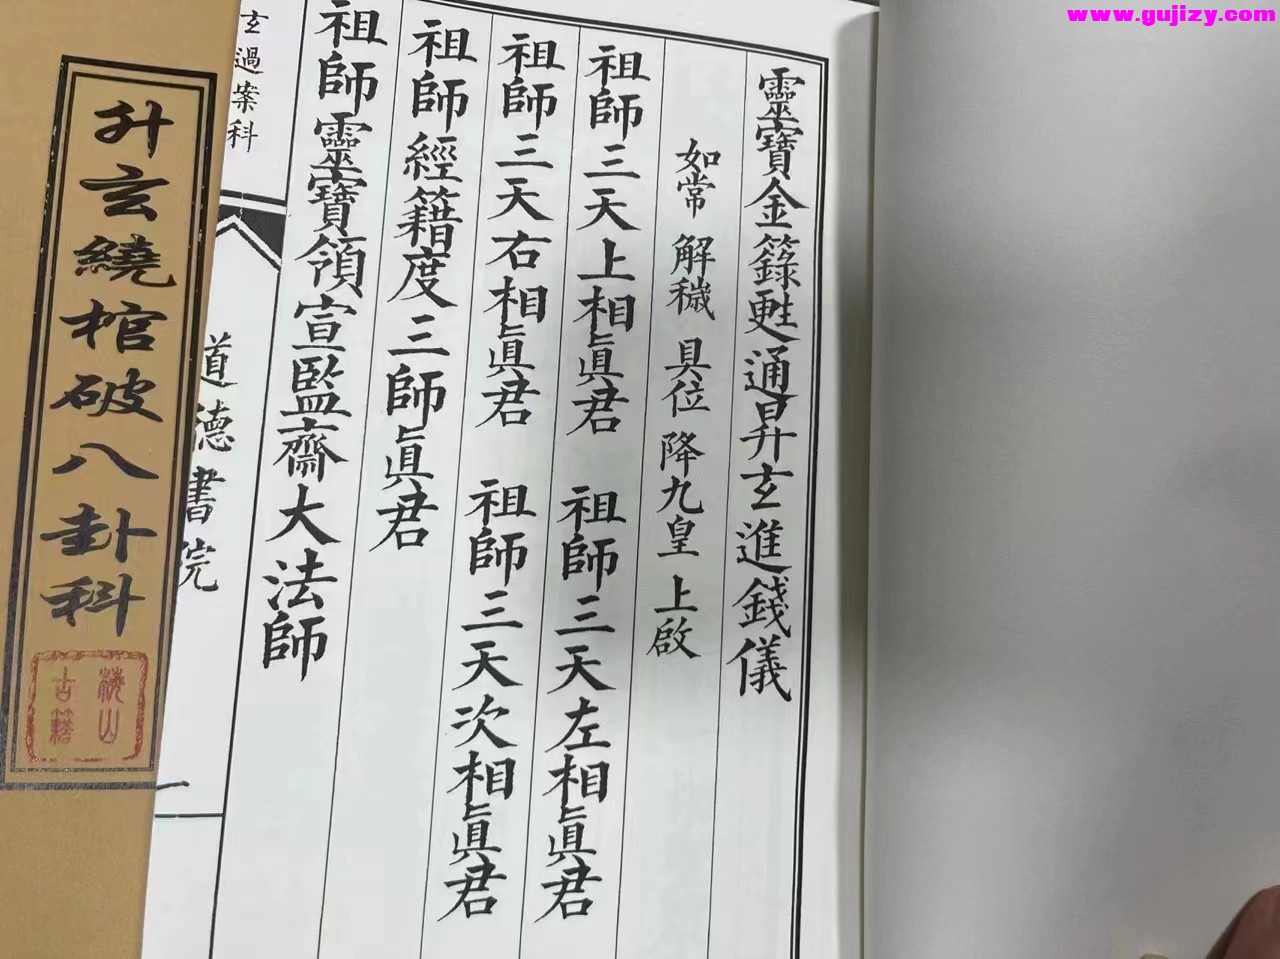 www.gujizy.com
靈寶金籙甦通昇玄進錢儀
如常 解穢 具位 降九皇 上啟
祖師三天上相眞君 祖師三天左相眞君
祖師三天右相眞君 祖師三天次相眞君
祖師經籍度三師眞君
祖師靈寶領宣監齋大法師
玄過案科
道德書院
一
升玄繞棺破八卦科
山
古籍